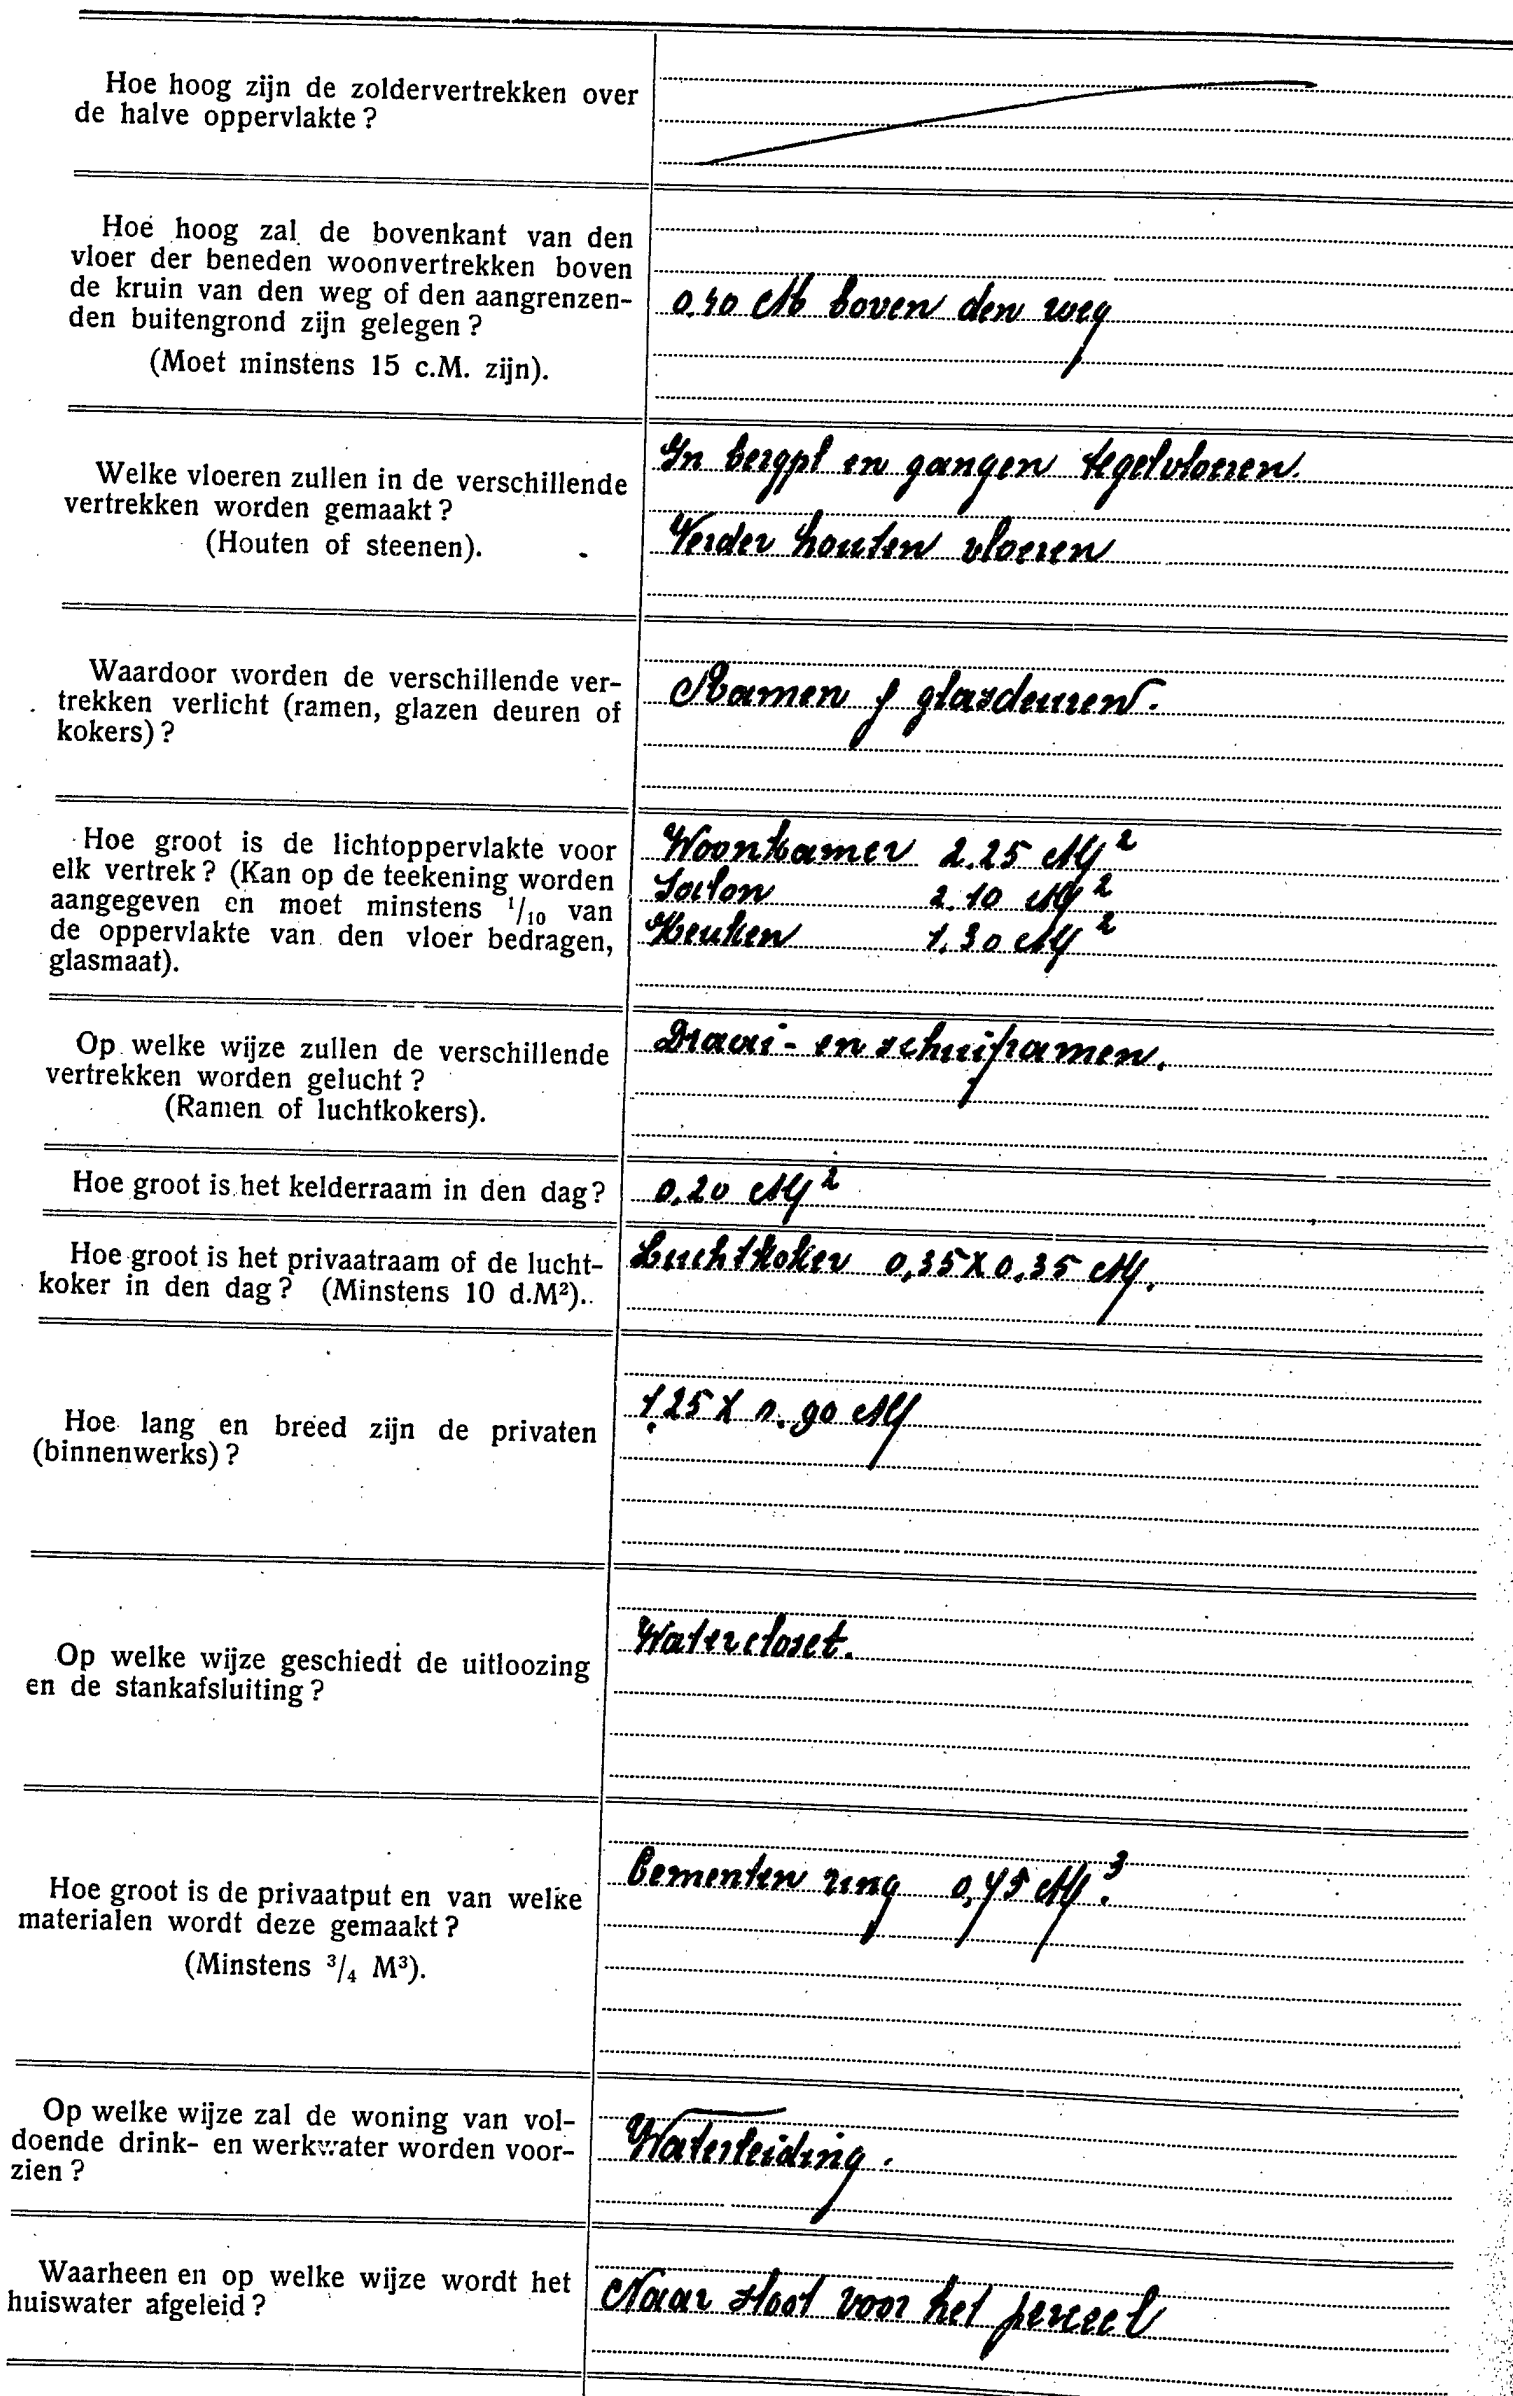 Hoe hoog zijn de zoldervertrekken over
de halve oppervlakte?
Hoe hoog zal de bovenkant van den
vloer der beneden woonvertrekken boven
de kruin van den weg of den aangrenzen-
den buitengrond zijn gelegen?
(Moet minstens 15 c.M. zijn).
0.40 M boven den weg
Welke vloeren zullen in de verschillende
vertrekken worden gemaakt?
(Houten of steenen).
In bergpl en gangen tegelvloeren.
Verder houten vloeren
Waardoor worden de verschillende ver-
trekken verlicht (ramen, glazen deuren of
kokers)?
Ramen & glasdeuren.
Hoe groot is de lichtoppervlakte voor
elk vertrek? (Kan op de teekening worden
aangegeven en moet minstens 1/10 van
de oppervlakte van den vloer bedragen,
glasmaat).
Woonkamer 2.25 M²
Salon 2.10 M²
Keuken 1.30 M²
Op welke wijze zullen de verschillende
vertrekken worden gelucht?
(Ramen of luchtkokers).
Draai- en schuiframen.
Hoe groot is het kelderraam in den dag?
0.20 M²
Hoe groot is het privaatraam of de lucht-
koker in den dag? (Minstens 10 d.M²).
Luchtkoker 0,35 X 0.35 M.
Hoe lang en breed zijn de privaten
(binnenwerks)?
1,25 X 0.90 M
Op welke wijze geschiedt de uitloozing
en de stankafsluiting?
Watercloset.
Hoe groot is de privaatput en van welke
materialen wordt deze gemaakt?
(Minstens 3/4 M³).
Cementen ring M³.
Op welke wijze zal de woning van vol-
doende drink- en werkwater worden voor-
zien?
Waterleiding.
Waarheen en op welke wijze wordt het
huiswater afgeleid?
Naar sloot voor het perceel